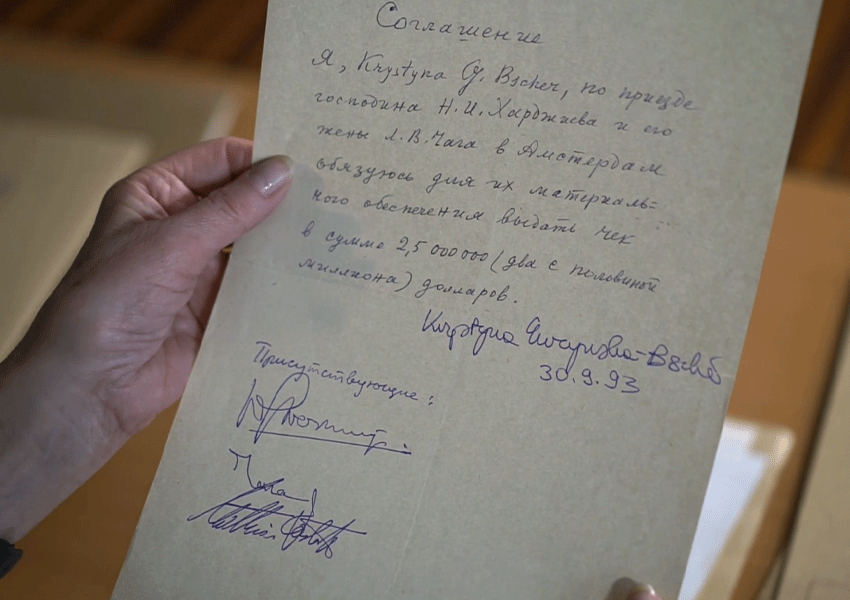 Соглашение
Я, Krystyna G. Bscher, по приезде
господина Н.И. Харджиева и его
жены Л.В. Чага в Амстердам
обязуюсь для их материаль=
ного обеспечения выдать чек
в сумме 2,5 000 000 (два с половиной
миллиона) долларов.
Krystyna
30.9.93
Присутствующие: